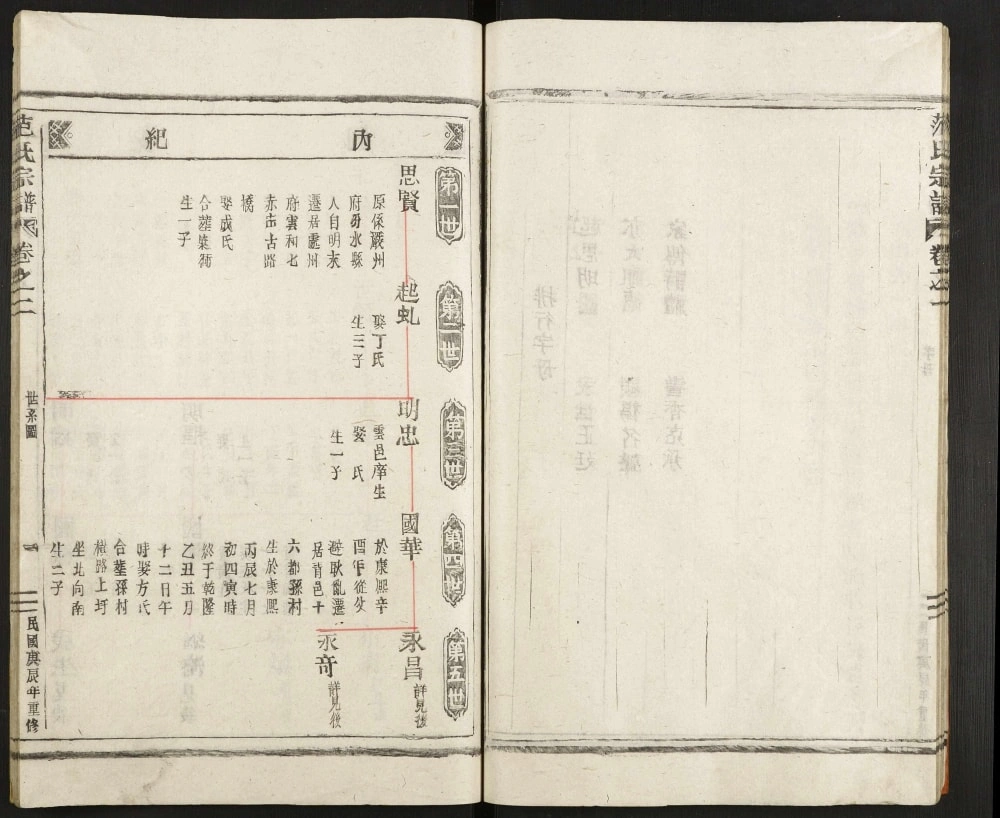 內紀
第一世
思賢
原係嚴州
府分水縣
人自明末
遷居處州
府雲和七
赤市古路
橋
娶成氏
合墓葉衕
生一子
第二世
起虬
娶丁氏
生三子
第三世
明忠
雲邑庠生
娶 氏
生一子
第四世
國華
於康熙辛
酉年從父
避耿亂遷
居青邑十
六都孫村
生於康熙
丙辰七月
初四寅時
終于乾隆
乙丑五月
十二日午
時娶方氏
合墓孫村
樹路上圩
坐北向南
生二子
第五世
永昌
詳見後
永奇
詳見後
范氏宗譜 卷之二
世系圖
一
民國庚辰年重修
范氏宗譜 卷之一
排行字母